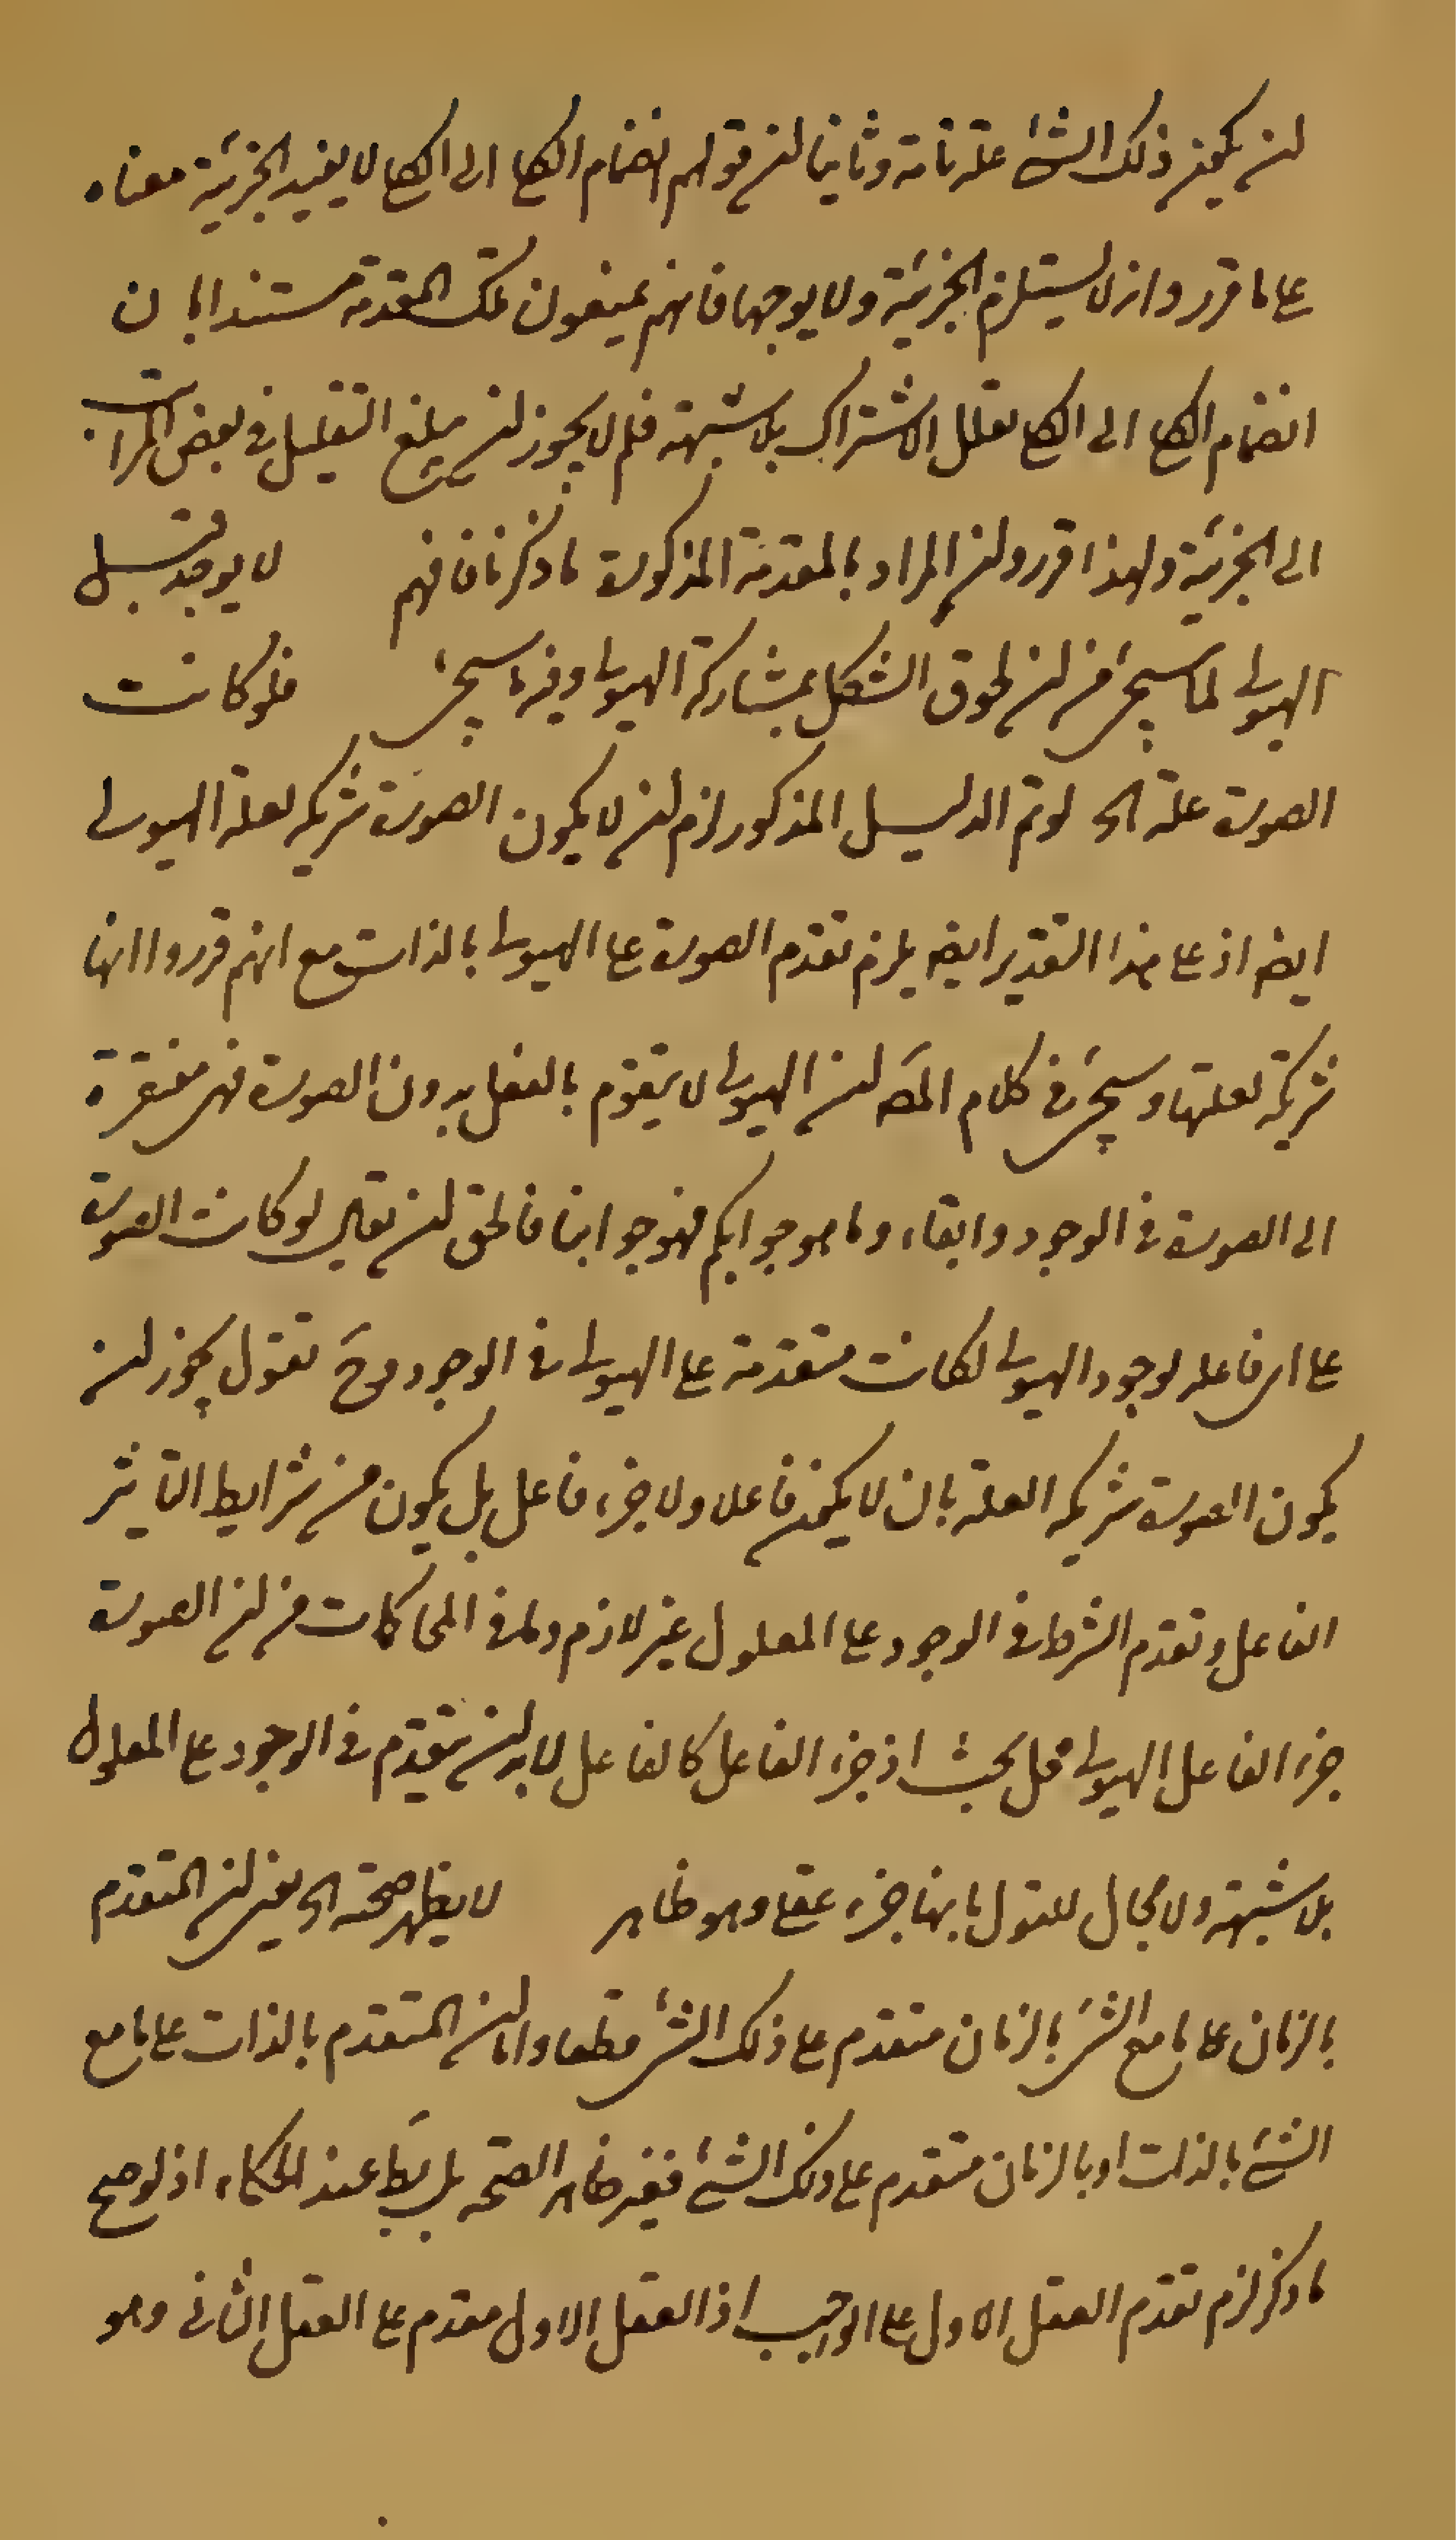 ان يكون ذلك الشئ علة تامة وثانيا ان قولهم انضمام الكلي الى الكلي لا يفيد الجزئية معناه
على ما قرروا انه لا يستلزم الجزئية ولا يوجبها فانهم يمنعون تلك المقدمة مستندا بان
انضمام الكلي الى الكلي يقلل الاشتراك بلا شبهة فلم لا يجوز ان يبلغ التقليل في بعض المراتب
الى الجزئية ولهذا قرروا ان المراد بالمقدمة المذكورة ما ذكرنا فافهم لا يوجد قبل
الهيولى لما سيجئ من ان لحوق الشكل بمشاركة الهيولى وفيه ما سيجئ فلو كانت
الصورة علة الخ لو تم الدليل المذكور لزم ان لا يكون الصورة شريكة لعلة الهيولى
ايضا اذ على هذا التقدير ايضا يلزم تقدم الصورة على الهيولى بالذات مع انهم قرروا انها
شريكة لعلتها وسيجئ في كلام المصَ ان الهيولى لا يتقوم بالفعل بدون الصورة فهى مفتقرة
الى الصورة في الوجود وابقاء وما هو جوابكم فهو جوابنا فالحق ان يقال لو كانت الصورة
على اى فاعله لوجود الهيولى لكانت متقدمة على الهيولى في الوجود وحَ نقول يجوز ان
يكون الصورة شريكة العلة بان لا يكون فاعلا ولا جزء فاعل بل يكون من شرايط التأثير
الفاعل وتقدم الشرط في الوجود على المعلول غير لازم وما في المحاكمات من ان الصورة
جزء الفاعل الهيولى محل بحث اذ جزء الفاعل كالفاعل لا بد ان يتقدم في الوجود على المعلول
بلا شبهة ولا مجال للقول بانها جزء عقلي وهو ظاهر لا يظهر صحته الخ يعنى ان المتقدم
بالزمان على ما مع الشئ بالزمان متقدم على ذلك الشئ قطعا واما ان المتقدم بالذات على ما مع
الشئ بالذات او بالزمان متقدم على ذلك الشئ فغير ظاهر الصحة بل بطَ عند الحكماء اذ لو صح
ما ذكر لزم تقدم العقل الاول على الواجب اذ العقل الاول مقدم على العقل الثانى وهو